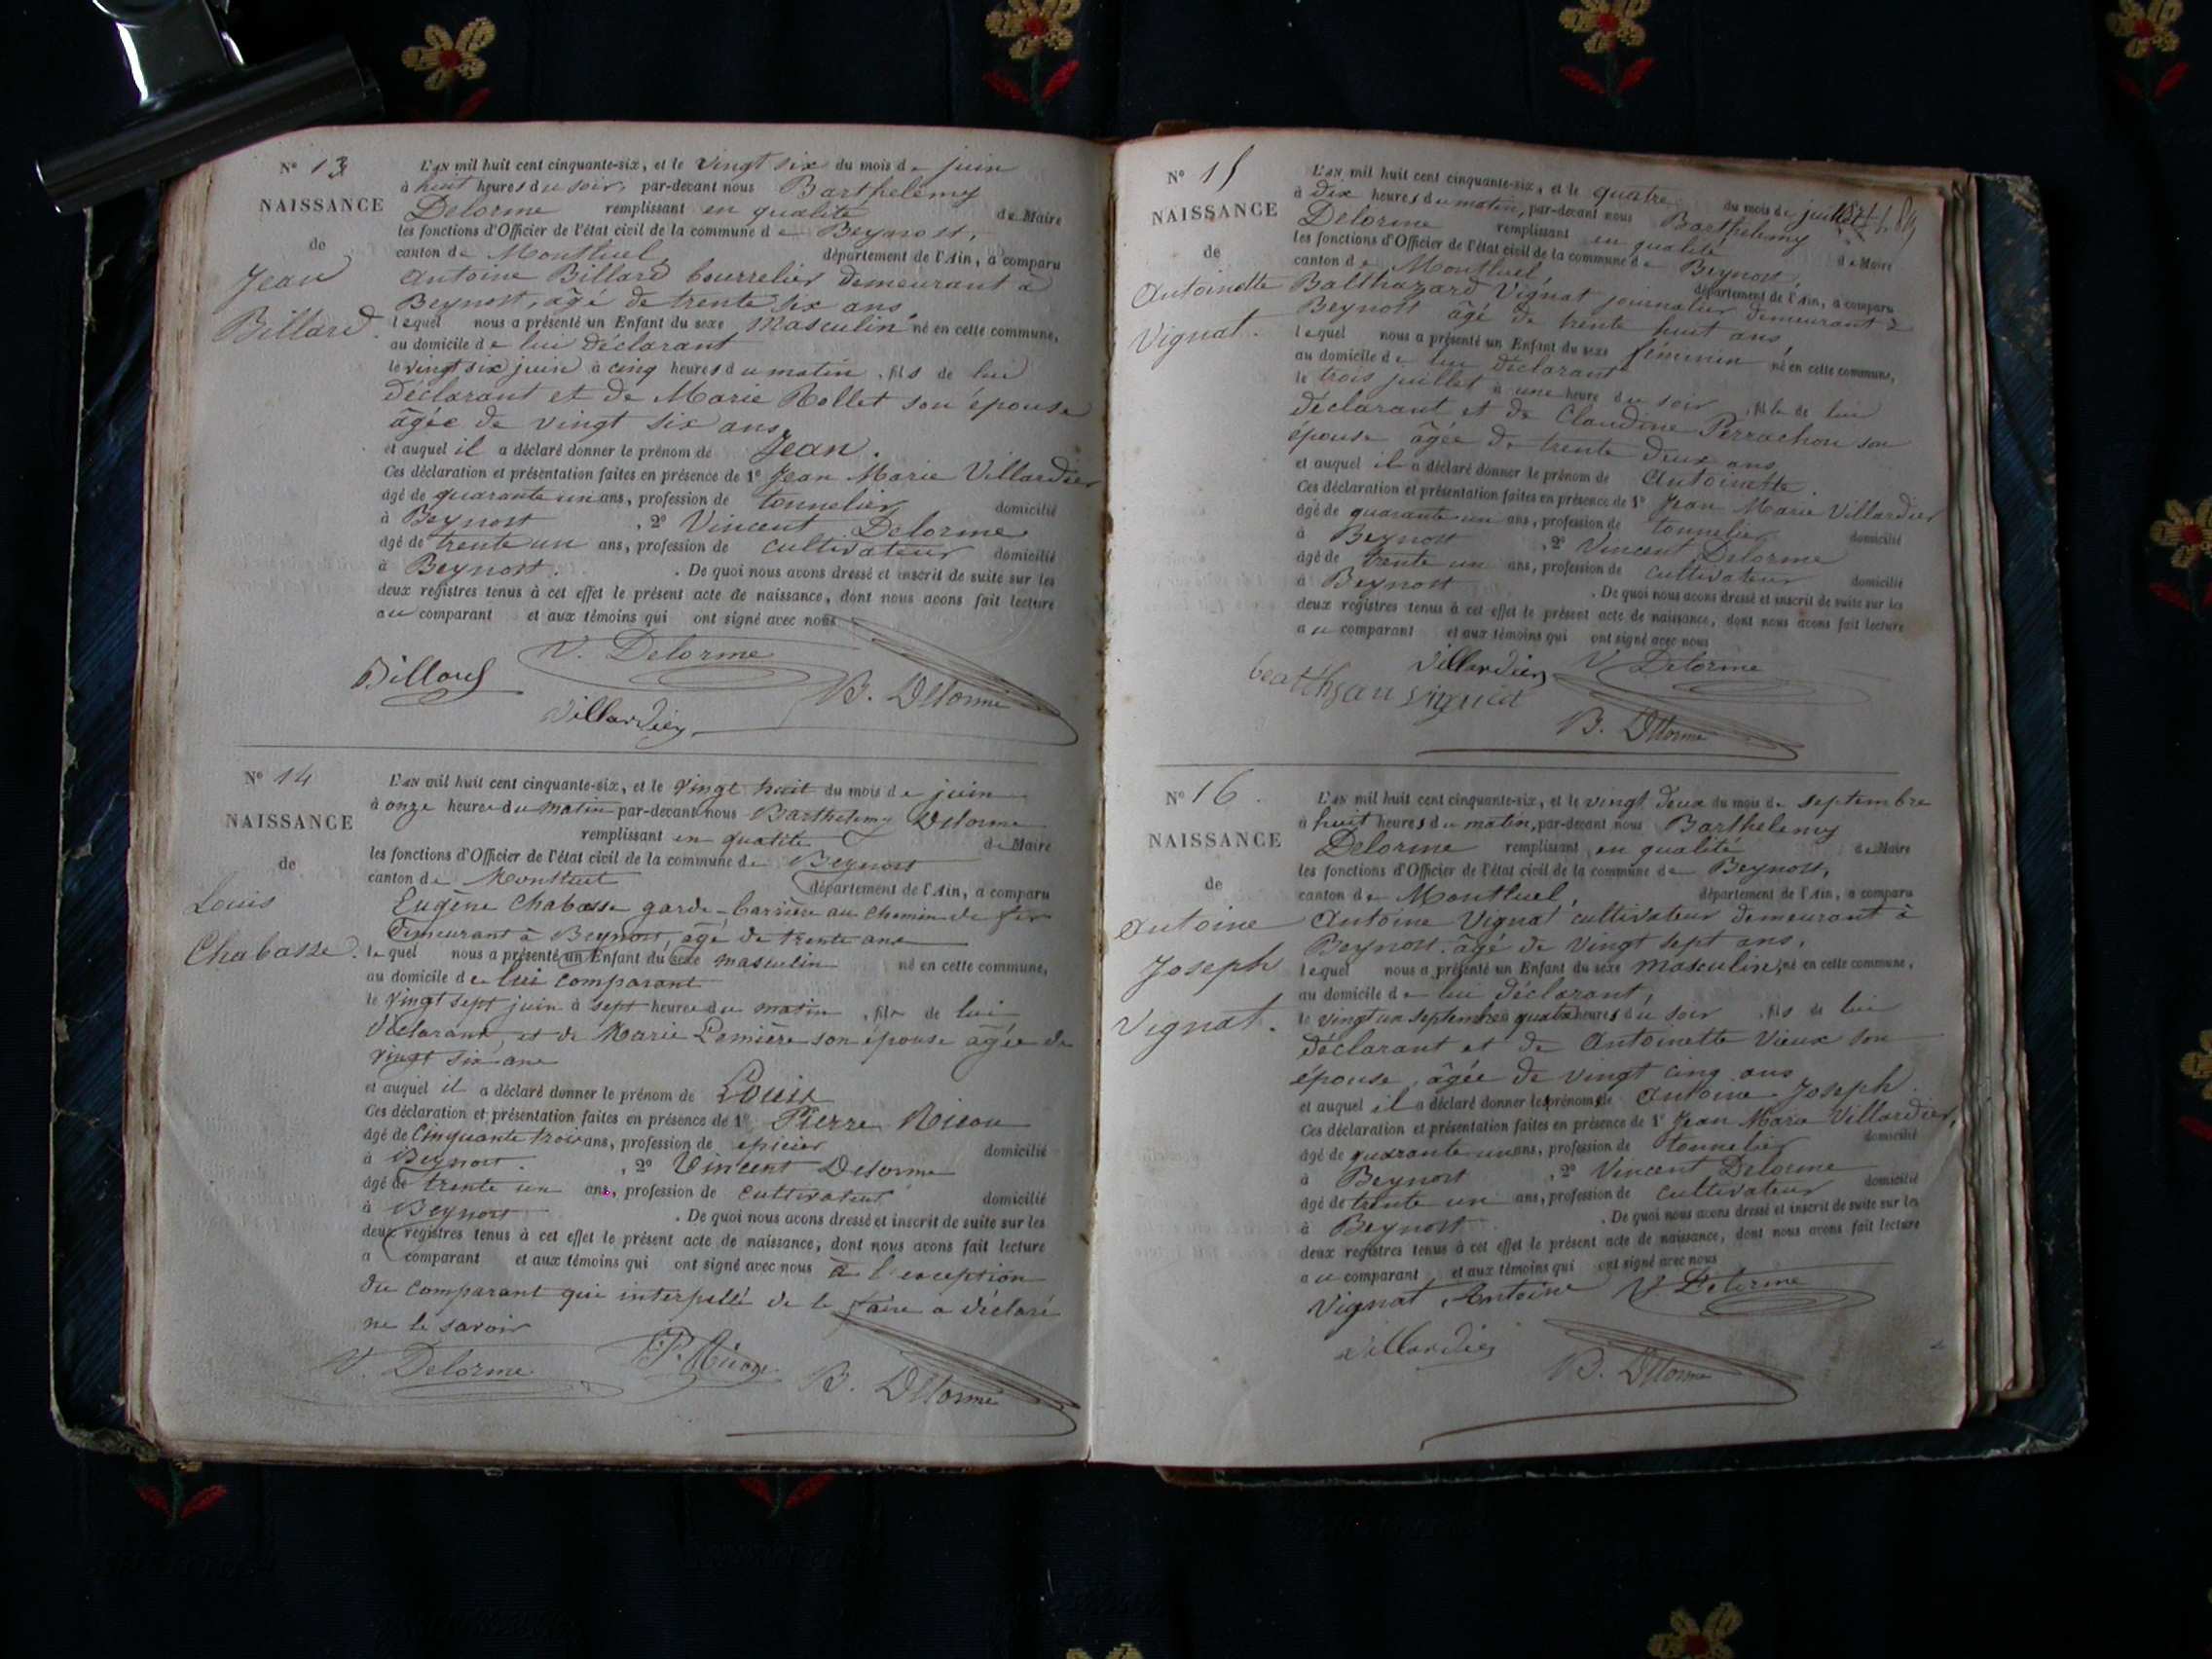 N° 13
NAISSANCE
de
Jean
Billard
L'AN mil huit cent cinquante-six, et le vingt six du mois de juin
à huit heures du soir, par-devant nous Barthelemy
Delorme remplissant en qualité de Maire
les fonctions d'Officier de l'état civil de la commune de Beynost,
canton de Montluel, département de l'Ain, a comparu
Antoine Billard bourrelier demeurant à
Beynost, âgé de trente six ans,
lequel nous a présenté un Enfant du sexe Masculin né en cette commune,
au domicile de lui déclarant
le vingt six juin à cinq heures du matin, fils de lui
déclarant et de Marie Rollet son épouse
âgée de vingt six ans,
et auquel il a déclaré donner le prénom de Jean.
Ces déclaration et présentation faites en présence de 1° Jean Marie Villardier
âgé de quarante un ans, profession de tonnelier domicilié
à Beynost, 2° Vincent Delorme
âgé de trente un ans, profession de cultivateur domicilié
à Beynost. De quoi nous avons dressé et inscrit de suite sur les
deux registres tenus à cet effet le présent acte de naissance, dont nous avons fait lecture
au comparant et aux témoins qui ont signé avec nous
V. Delorme
Billard
B. Delorme
Villardier
N° 14
NAISSANCE
de
Louis
Chabasse.
L'AN mil huit cent cinquante-six, et le vingt huit du mois de juin
à onze heures du matin par-devant nous Barthelemy Delorme
remplissant en qualité de Maire
les fonctions d'Officier de l'état civil de la commune de Beynost
canton de Montluel département de l'Ain, a comparu
Eugène Chabasse garde-barrière au chemin de fer
demeurant à Beynost, âgé de trente ans
lequel nous a présenté un Enfant du sexe masculin né en cette commune,
au domicile de lui comparant
le vingt sept juin à sept heures du matin, fils de lui
déclarant, et de Marie Lemière son épouse âgée de
vingt six ans
et auquel il a déclaré donner le prénom de Louis
Ces déclaration et présentation faites en présence de 1° Pierre
âgé de cinquante trois ans, profession de epicier domicilié
à Beynost. , 2° Vincent Delorme
âgé de trente un ans, profession de cultivateur domicilié
à Beynost. De quoi nous avons dressé et inscrit de suite sur les
deux registres tenus à cet effet le présent acte de naissance, dont nous avons fait lecture
a comparant et aux témoins qui ont signé avec nous à l'exception
du comparant qui interpellé de le faire a déclaré
ne le savoir
V. Delorme
B. Delorme
N° 15
NAISSANCE
de
Antoinette
Vignat.
L'AN mil huit cent cinquante-six, et le quatre du mois de juillet
à dix heures du matin, par-devant nous Barthelemy
Delorme remplissant en qualité de Maire
les fonctions d'Officier de l'état civil de la commune de Beynost,
canton de Montluel, département de l'Ain, a comparu
Balthazard Vignat journalier demeurant à
Beynost âgé de trente huit ans,
lequel nous a présenté un Enfant du sexe féminin né en cette commune,
au domicile de lui déclarant
le trois juillet à une heure du soir, fille de lui
déclarant et de Claudine Perrachon son
épouse âgée de trente deux ans
et auquel il a déclaré donner le prénom de Antoinette.
Ces déclaration et présentation faites en présence de 1° Jean Marie Villardier
âgé de quarante un ans, profession de tonnelier domicilié
à Beynost, 2° Vincent Delorme
âgé de trente un ans, profession de cultivateur domicilié
à Beynost. De quoi nous avons dressé et inscrit de suite sur les
deux registres tenus à cet effet le présent acte de naissance, dont nous avons fait lecture
au comparant et aux témoins qui ont signé avec nous
Villardier V Delorme
B. Delorme
N° 16.
NAISSANCE
de
Antoine
Joseph
Vignat.
L'AN mil huit cent cinquante-six, et le vingt deux du mois de septembre
à huit heures du matin, par-devant nous Barthelemy
Delorme remplissant en qualité de Maire
les fonctions d'Officier de l'état civil de la commune de Beynost,
canton de Montluel, département de l'Ain, a comparu
Antoine Vignat cultivateur demeurant à
Beynost âgé de vingt sept ans,
lequel nous a présenté un Enfant du sexe Masculin, né en cette commune,
au domicile de lui déclarant,
le vingt un septembre à quatre heures du soir, fils de lui
déclarant et de Antoinette Vieux son
épouse, âgée de vingt cinq ans
et auquel il a déclaré donner les prénoms de Antoine Joseph.
Ces déclaration et présentation faites en présence de 1° Jean Marie Villardier,
âgé de quarante un ans, profession de tonnelier domicilié
à Beynost, 2° Vincent Delorme
âgé de trente un ans, profession de cultivateur domicilié
à Beynost. De quoi nous avons dressé et inscrit de suite sur les
deux registres tenus à cet effet le présent acte de naissance, dont nous avons fait lecture
au comparant et aux témoins qui ont signé avec nous
Vignat Antoine V Delorme
Villardier
B. Delorme